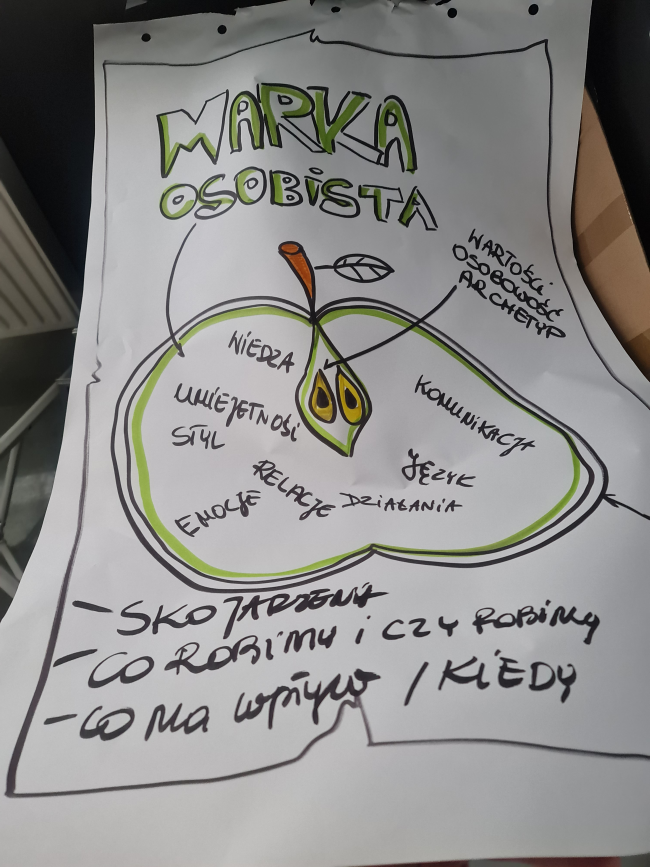 MARKA
OSOBISTA
WARTOŚCI
OSOBOWOŚĆ
ARCHETYP
WIEDZA
UMIEJĘTNOŚĆI
STYL
EMOCJE
RELACJE
DZIAŁANIA
JĘZYK
KOMUNIKACJA
- SKOJARZENIA
- CO ROBIMY i CZY ROBIMY
- CO MA WPŁYW / KIEDY